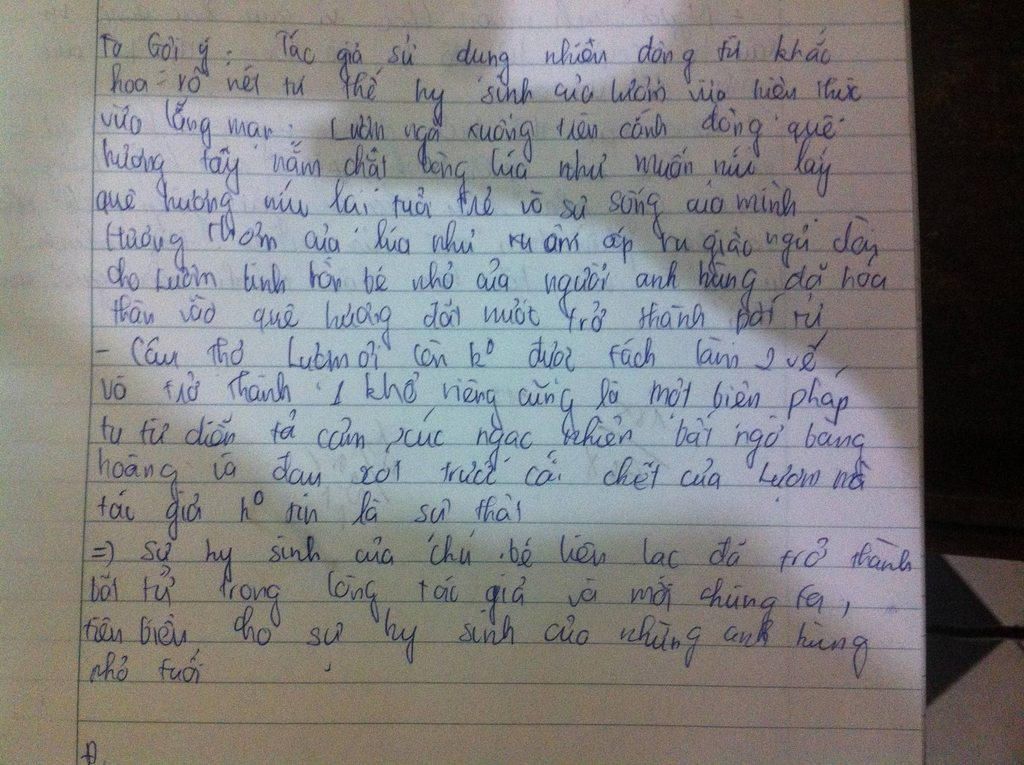 Ta Gợi ý: Tác giả sử dụng nhiều động từ khắc
hoạ rõ nét tư thế hy sinh của Lượm vừa hiện thực
vừa lãng mạn. Lượm ngã xuống trên cánh đồng quê
hương tay nắm chặt bông lúa như muốn níu lấy
quê hương níu lại tuổi trẻ và sự sống của mình.
Hương thơm của lúa như ru ấm áp ru giấc ngủ dài
cho Lượm linh hồn bé nhỏ của người anh hùng đã hoá
thân vào quê hương đất nước trở thành bất tử
- Câu thơ Lượm ơi còn k° được tách làm 2 vế,
và trở thành 1 khổ riêng cũng là một biện pháp
tu từ diễn tả cảm xúc ngạc nhiên bất ngờ bàng
hoàng và đau xót trước cái chết của Lượm mà
tác giả k° tin là sự thật
=) Sự hy sinh của chú bé liên lạc đã trở thành
bất tử trong lòng tác giả và mỗi chúng ta,
tiêu biểu cho sự hy sinh của những anh hùng
nhỏ tuổi
Đ.